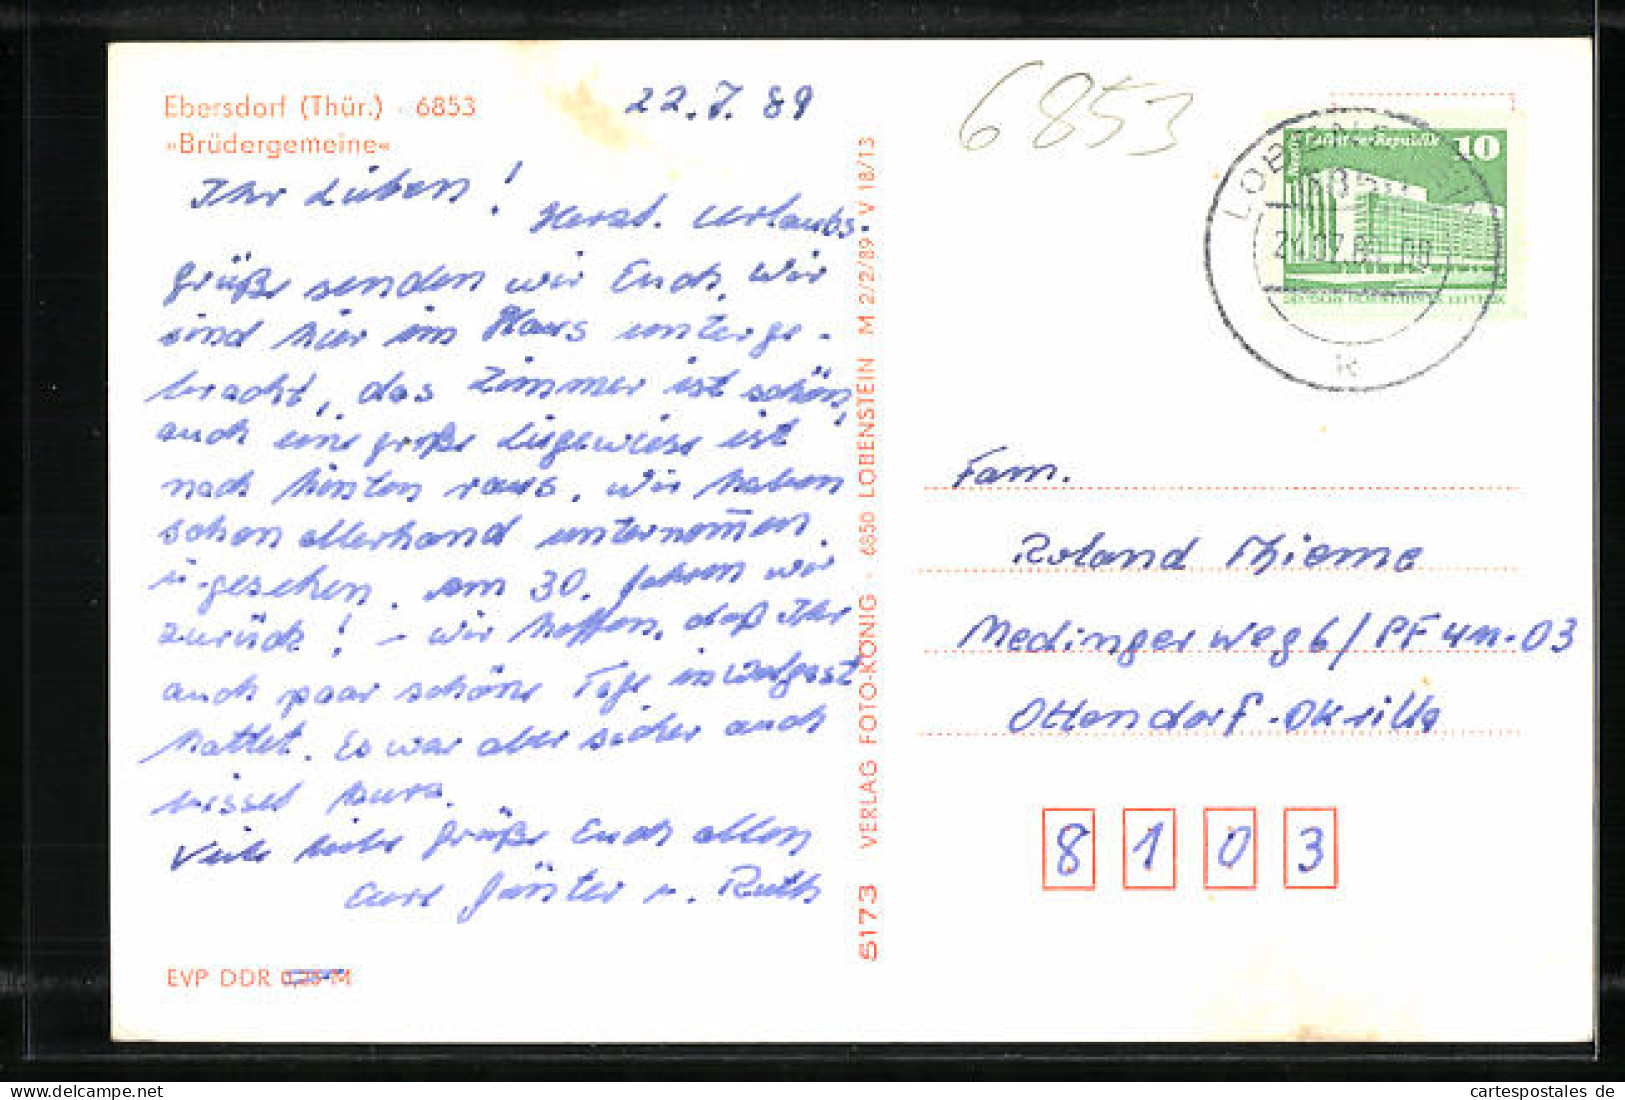 Ebersdorf (Thür.) · 6853
»Brüdergemeine«
22.7.89
6853
Ihr Lieben!
Herzl. Urlaubs-
grüße senden wir Euch. Wir
sind hier im Haus unterge-
bracht, das Zimmer ist schön,
auch eine große Liegewiese ist
nach hinten raus. Wir haben
schon allerhand unternom̅en
u. gesehen. Am 30. fahren wir
zurück! – Wir hoffen, daß Ihr
auch paar schöne Tage in Wolgast
hattet. Es war aber sicher auch
bissel kurz.
Viele liebe Grüße Euch allen
Eure Günter u. Ruth
EVP DDR 0,25 M
5173 VERLAG FOTO-KÖNIG · 6850 LOBENSTEIN M 2/2/89 · V 18/13
10
DEUTSCHE DEMOKRATISCHE REPUBLIK
Fam.
Roland Thieme
Medinger Weg 6/PF 411-03
Ottendorf-Okrilla
8 1 0 3
cartespostales de